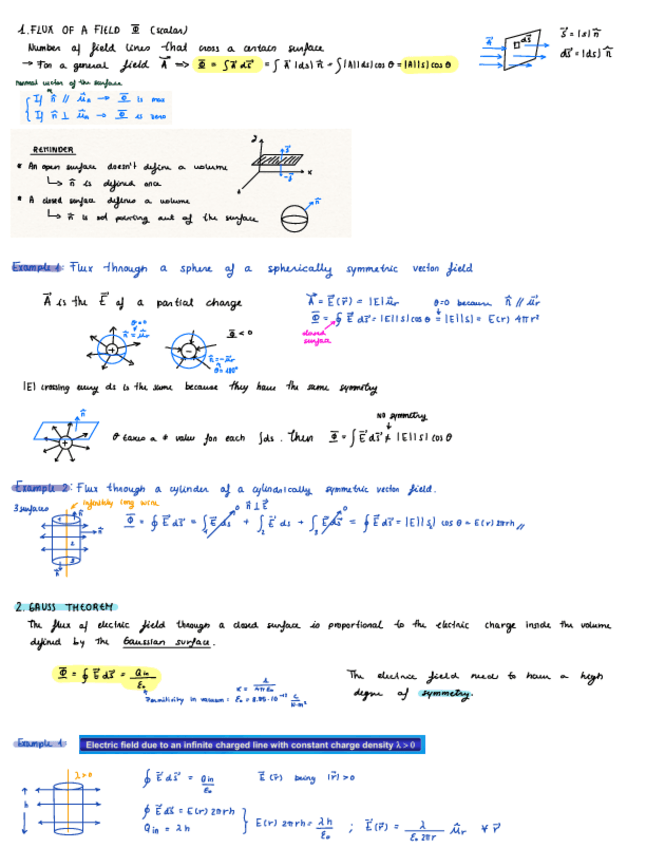 1. FLUX OF A FIELD Φ (scalar)
Number of field lines that cross a certain surface
→ For a general field A⃗ ⟹ Φ = ∫A⃗ ds⃗ = ∫A⃗ |ds| n̂ = ∫|A||ds| cos θ = |A||s| cos θ
A⃗ ds⃗
s⃗ = |s| n̂
ds⃗ = |ds| n̂
normal vector of the surface
If n̂ // û → Φ is max
If n̂ ⊥ û → Φ is zero
REMINDER
* An open surface doesn't define a volume
↳ n̂ is defined once
* A closed surface defines a volume
↳ n̂ is not pointing out of the surface
z
s⃗
-s⃗
x
n̂
Example 1: Flux through a sphere of a spherically symmetric vector field
A⃗ is the E⃗ of a partial charge
A⃗ = E⃗(r⃗) = |E| ûr θ=0 because n̂ // ûr
Φ = ∮ E⃗ ds⃗ = |E||s| cos θ = |E||s| = E(r) 4πr²
closed surface
θ=0
n̂ = ûr
+
-
Φ < 0
n̂ = -ûr
θ=180°
|E| crossing every ds is the same because they have the same symmetry
n̂
+
NO symmetry
θ takes a ≠ value for each ∫ds. Then Φ = ∫E⃗ ds⃗ ≠ |E||s| cos θ
Example 2: Flux through a cylinder of a cylindrically symmetric vector field.
3 surfaces
infinitely long wire
n̂ ⊥ E⃗
Φ = ∮ E⃗ ds⃗ = ∫₁ E⃗ ds 0 + ∫₂ E⃗ ds + ∫₃ E⃗ ds⃗ 0 = ∮ E⃗ ds⃗ = |E||s₂| cos θ = E(r) 2πrh //
n̂
1
2
3
n̂
n̂
2. GAUSS THEOREM
The flux of electric field through a closed surface is proportional to the electric charge inside the volume
defined by the Gaussian surface.
Φ = ∮ E⃗ ds⃗ = Qin/ε₀
k = 1/4πε₀
Permitivity in vacuum: ε₀ = 8.85·10⁻¹² C/N·m²
The electric field need to have a high
degree of symmetry.
Example 1 Electric field due to an infinite charged line with constant charge density λ > 0
λ>0
h
∮ E⃗ ds⃗ = Qin/ε₀ E⃗(r⃗) being |r⃗| > 0
∮ E⃗ ds⃗ = E(r) 2πrh
Qin = λh
} E(r) 2πrh = λh/ε₀ ; E⃗(r⃗) = λ/ε₀2πr ûr ∀ r⃗